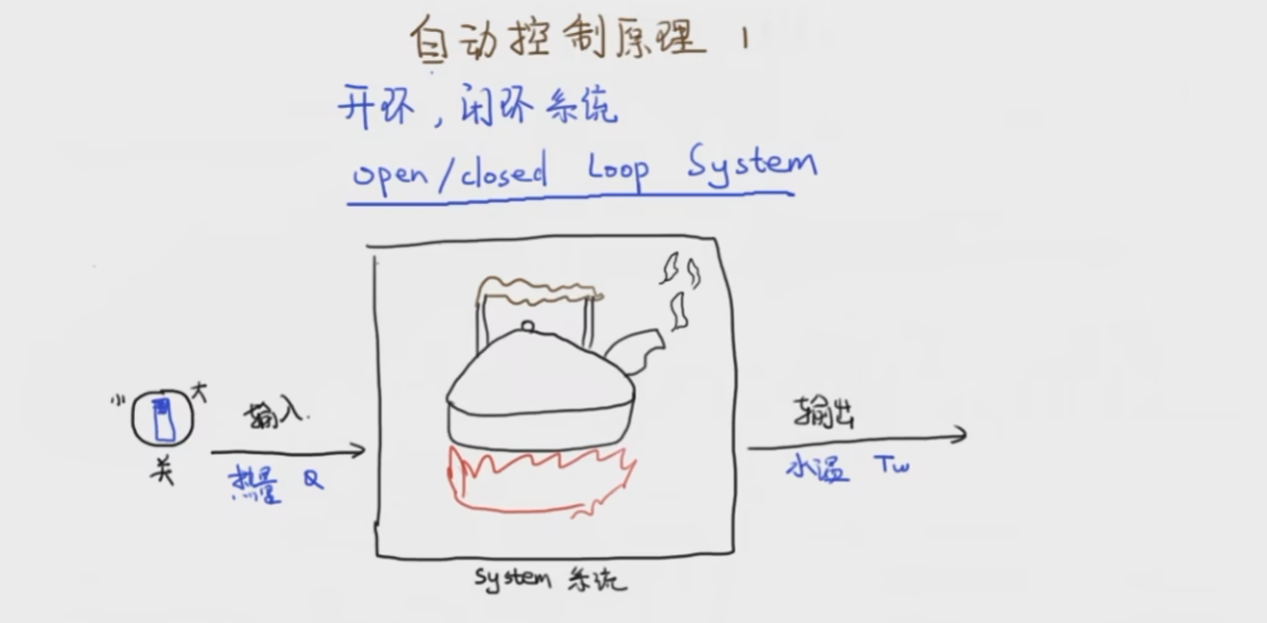 自动控制原理 1
开环,闭环系统
open/closed Loop System
小
大
关
输入.
热量 Q
输出
水温 Tw
system 系统